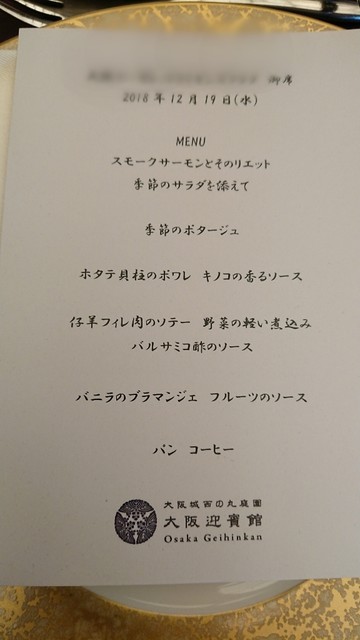 御席
2018年12月19日(水)
MENU
スモークサーモンとそのリエット
季節のサラダを添えて
季節のポタージュ
ホタテ貝柱のポワレ キノコの香るソース
仔羊フィレ肉のソテー 野菜の軽い煮込み
バルサミコ酢のソース
バニラのブラマンジェ フルーツのソース
パン コーヒー
大阪城西の丸庭園
大阪迎賓館
Osaka Geihinkan